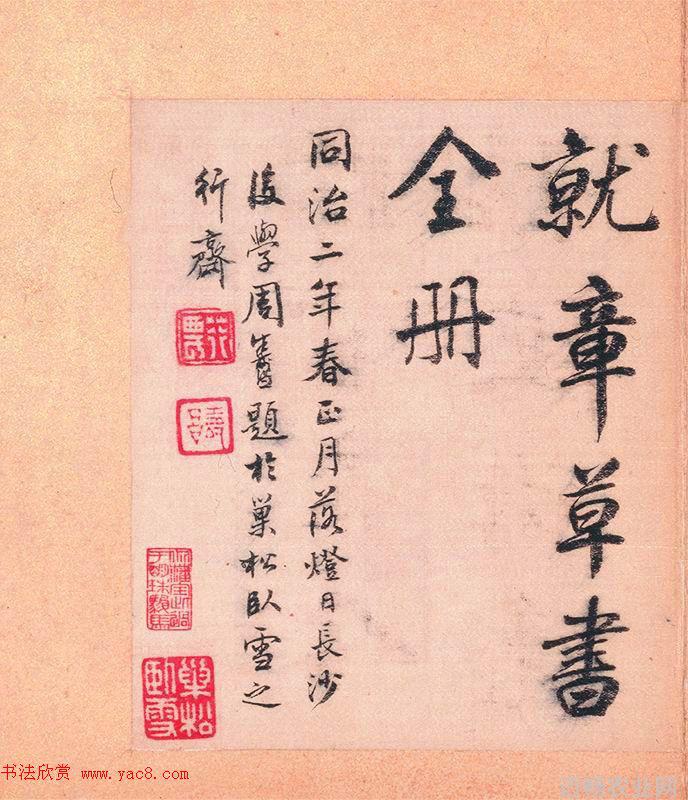 就章草書
全冊
同治二年春正月落燈日長沙
後學周題於巢松臥雪之
行齋
荇農
巢松臥雪
书法欣赏 www.yac8.com